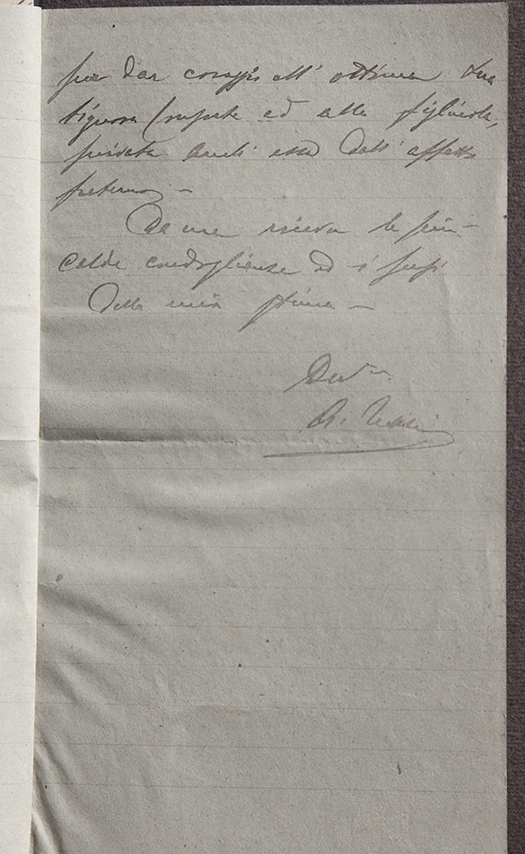 per dar coraggio all' ottima Sua
Signora Consorte ed alla figliuola,
privata anch' essa dall' affetto
fraterno –
Da me riceva le più
calde condoglianze ed i sensi
della mia stima –
Dev.mo